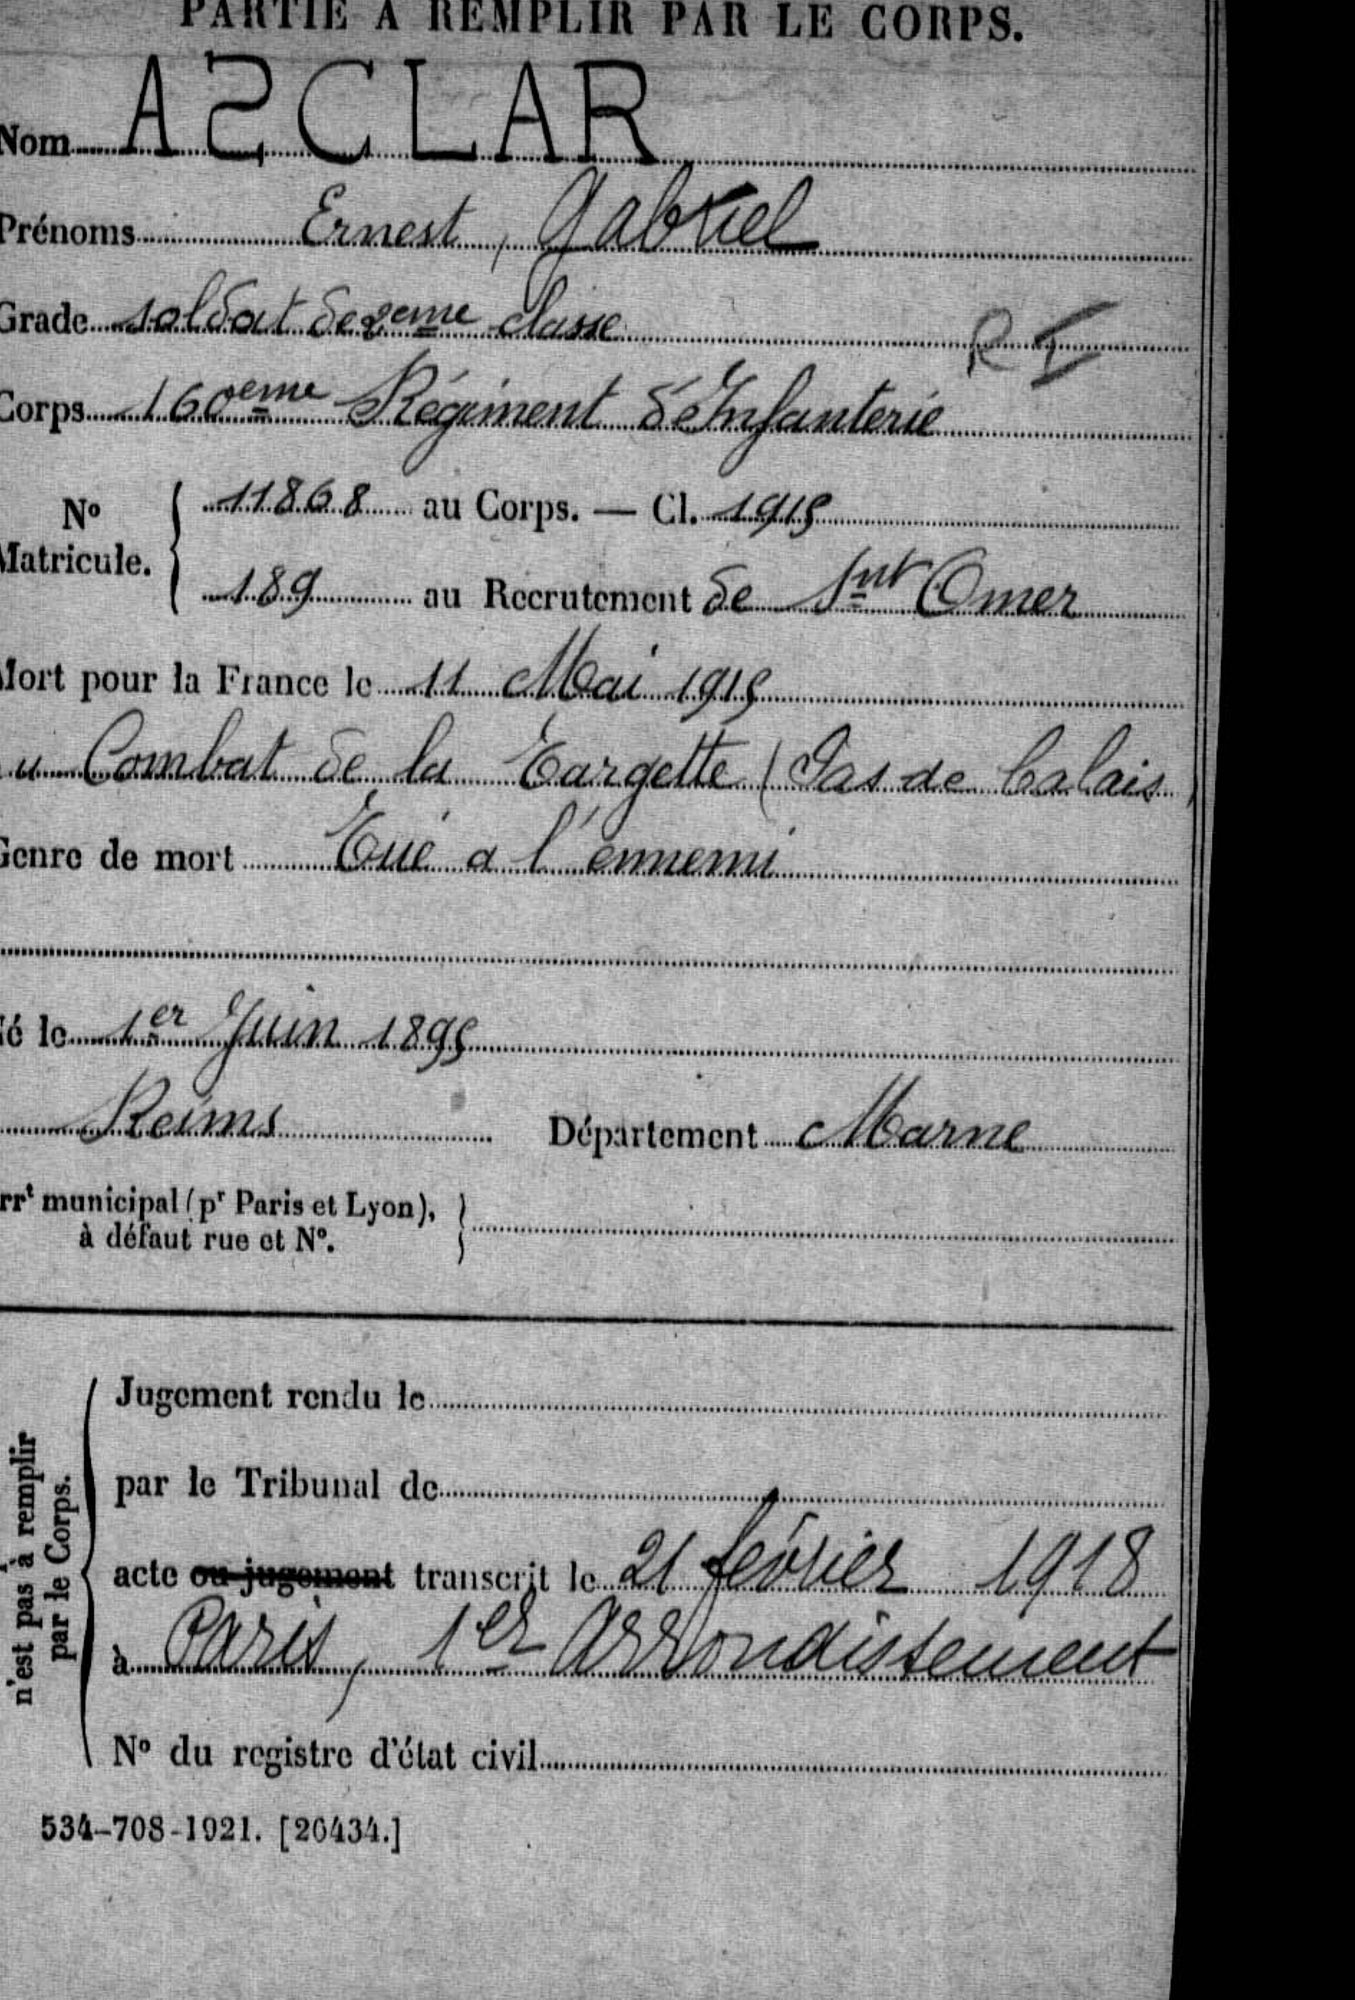 PARTIE À REMPLIR PAR LE CORPS.
Nom ASCLAR
Prénoms Ernest, Gabriel
Grade soldat de 2eme classe
R I
Corps 160eme Régiment d'Infanterie
N° Matricule. { 11868 au Corps. — Cl. 1915
189 au Recrutement de Snt Omer
Mort pour la France le 11 Mai 1915
au Combat de la Targette (Pas de Calais)
Genre de mort Tué a l'ennemi
Né le 1er Juin 1895
Reims Département Marne
Arrt municipal (pr Paris et Lyon), à défaut rue et N°. }
n'est pas à remplir par le Corps.
Jugement rendu le
par le Tribunal de
acte ou jugement transcrit le 21 février 1918
à Paris, 1er Arrondissement
N° du registre d'état civil
534-708-1921. [20434.]